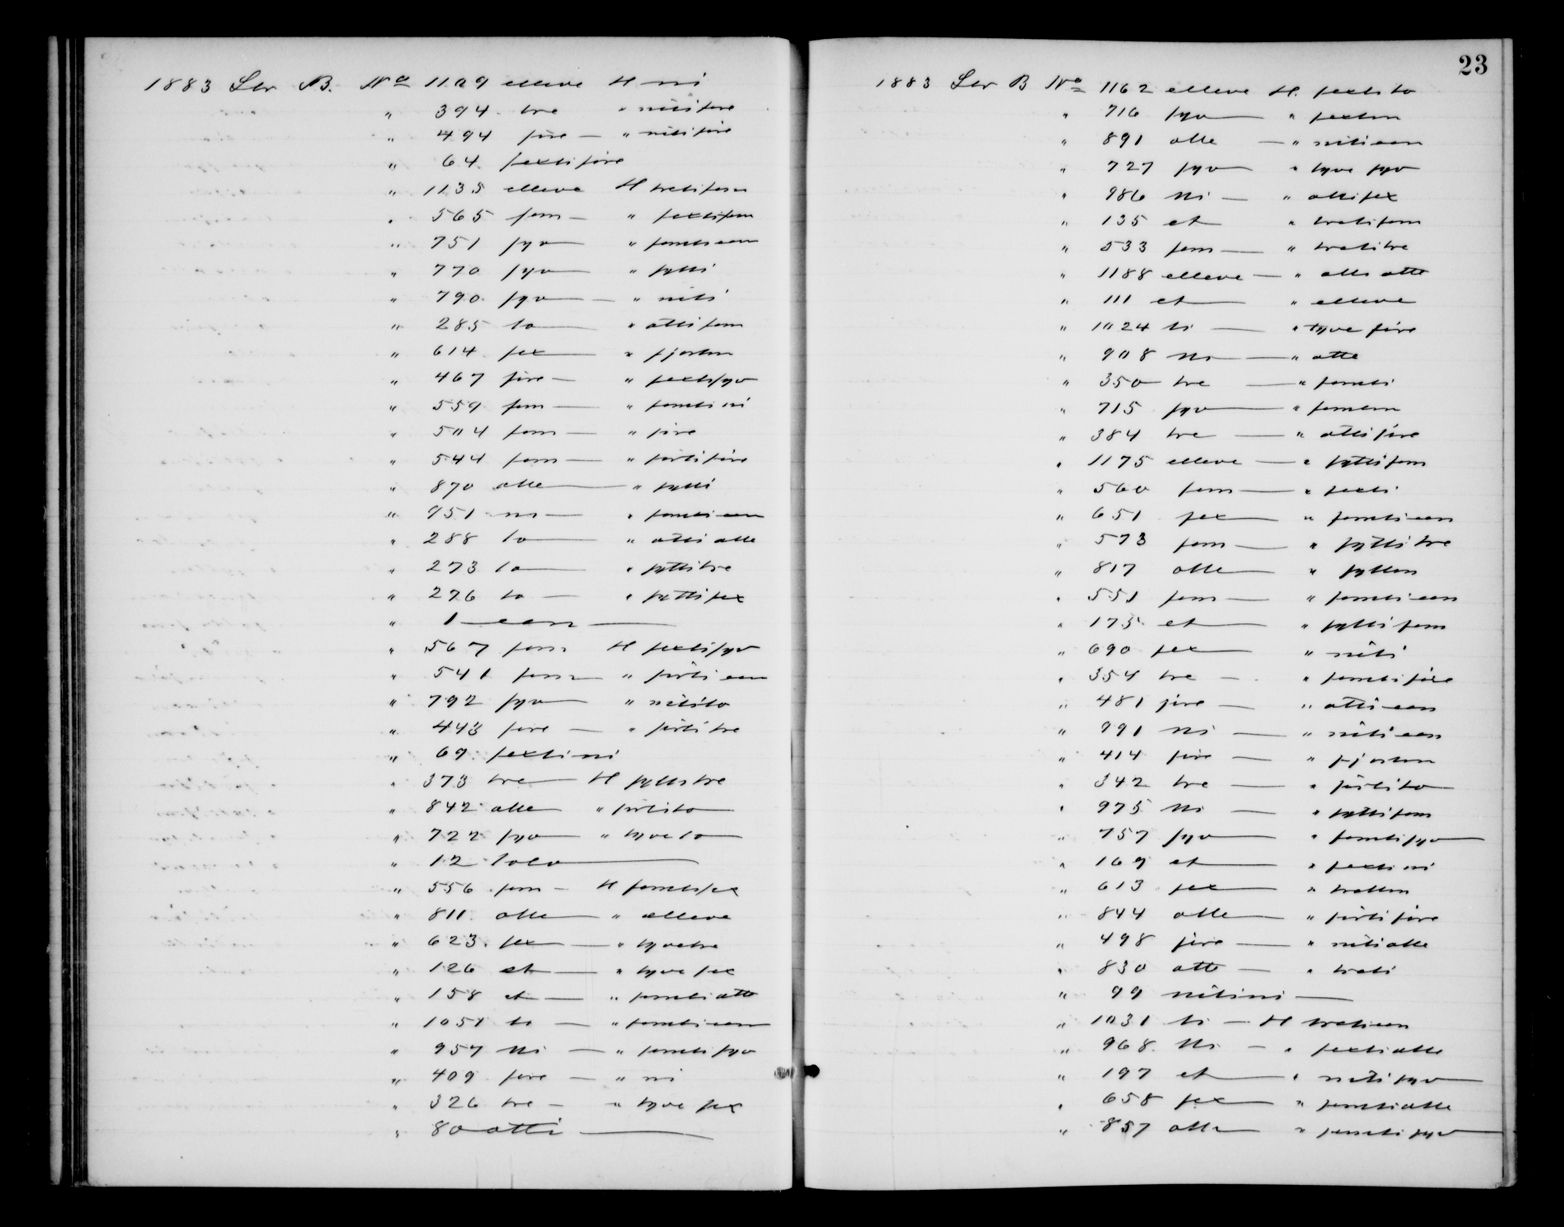 1883 Ltr B. No 1109 elleve H ni
" 394 tre " nitifire
" 494 fire — " nitifire
" 64 sextifire
" 1135 elleve H tretifem
" 565 fem — " sextifem
" 751 syv — " femti een
" 770 syv — " sytti
" 790 syv — " niti
" 285 to — " ottifem
" 614 sex — " fjorten
" 467 fire — " sextisyv
" 559 fem — " femti ni
" 504 fem — " fire
" 544 fem — " førtifire
" 870 otte — " sytti
" 951 ni — " femti een
" 288 to — " otti otte
" 273 to — " syttitre
" 276 to — " syttisex
" 1 — een —
" 567 fem H sextisyv
" 541 fem — " førti een
" 792 syv — " nitito
" 443 fire — " førtitre
" 69 sextini
" 373 tre — H syttitre
" 842 otte " førtito
" 722 syv — " tyveto
" 12 tolv —
" 556 fem — H femtisex
" 811 otte — " elleve
" 623 sex — " tyvetre
" 126 et — " tyvesex
" 158 et — " femtiotte
" 1051 ti — " femti een
" 957 Ni — " femtisyv
" 409 fire — " ni
" 326 tre — " tyvesex
" 80 otti —
23
1883 Ltr B No 1162 elleve H. sextito
" 716 syv — " sexten
" 891 otte — " niti een
" 727 syv — " tyvesyv
" 986 Ni — " ottisex
" 135 et " tretifem
" 533 fem — " tretitre
" 1188 elleve — " otti otte
" 111 et — " elleve
" 1024 ti — " tyvefire
" 908 Ni — " otte
" 350 tre — " femti
" 715 syv — " femten
" 384 tre — " ottifire
" 1175 elleve — " syttifem
" 560 fem — " sexti
" 651 sex — " femti een
" 573 fem — " syttitre
" 817 otte — " sytten
" 551 fem — " femti een
" 175 et — " syttifem
" 690 sex — " niti
" 354 tre — " femtifire
" 481 fire — " otti een
" 991 Ni — " niti een
" 414 fire — " fjorten
" 342 tre — " førtito
" 975 Ni — " syttifem
" 757 syv — " femtisyv
" 169 et — " sextini
" 613 sex — " tretten
" 844 otte — " førtifire
" 498 fire — " nitiotte
" 830 otte — " treti
" 99 nitini —
" 1031 ti — H treti een
" 968 Ni — " sextiotte
" 197 et — " nitisyv
" 658 sex — " femtiotte
" 857 otte — " femtisyv